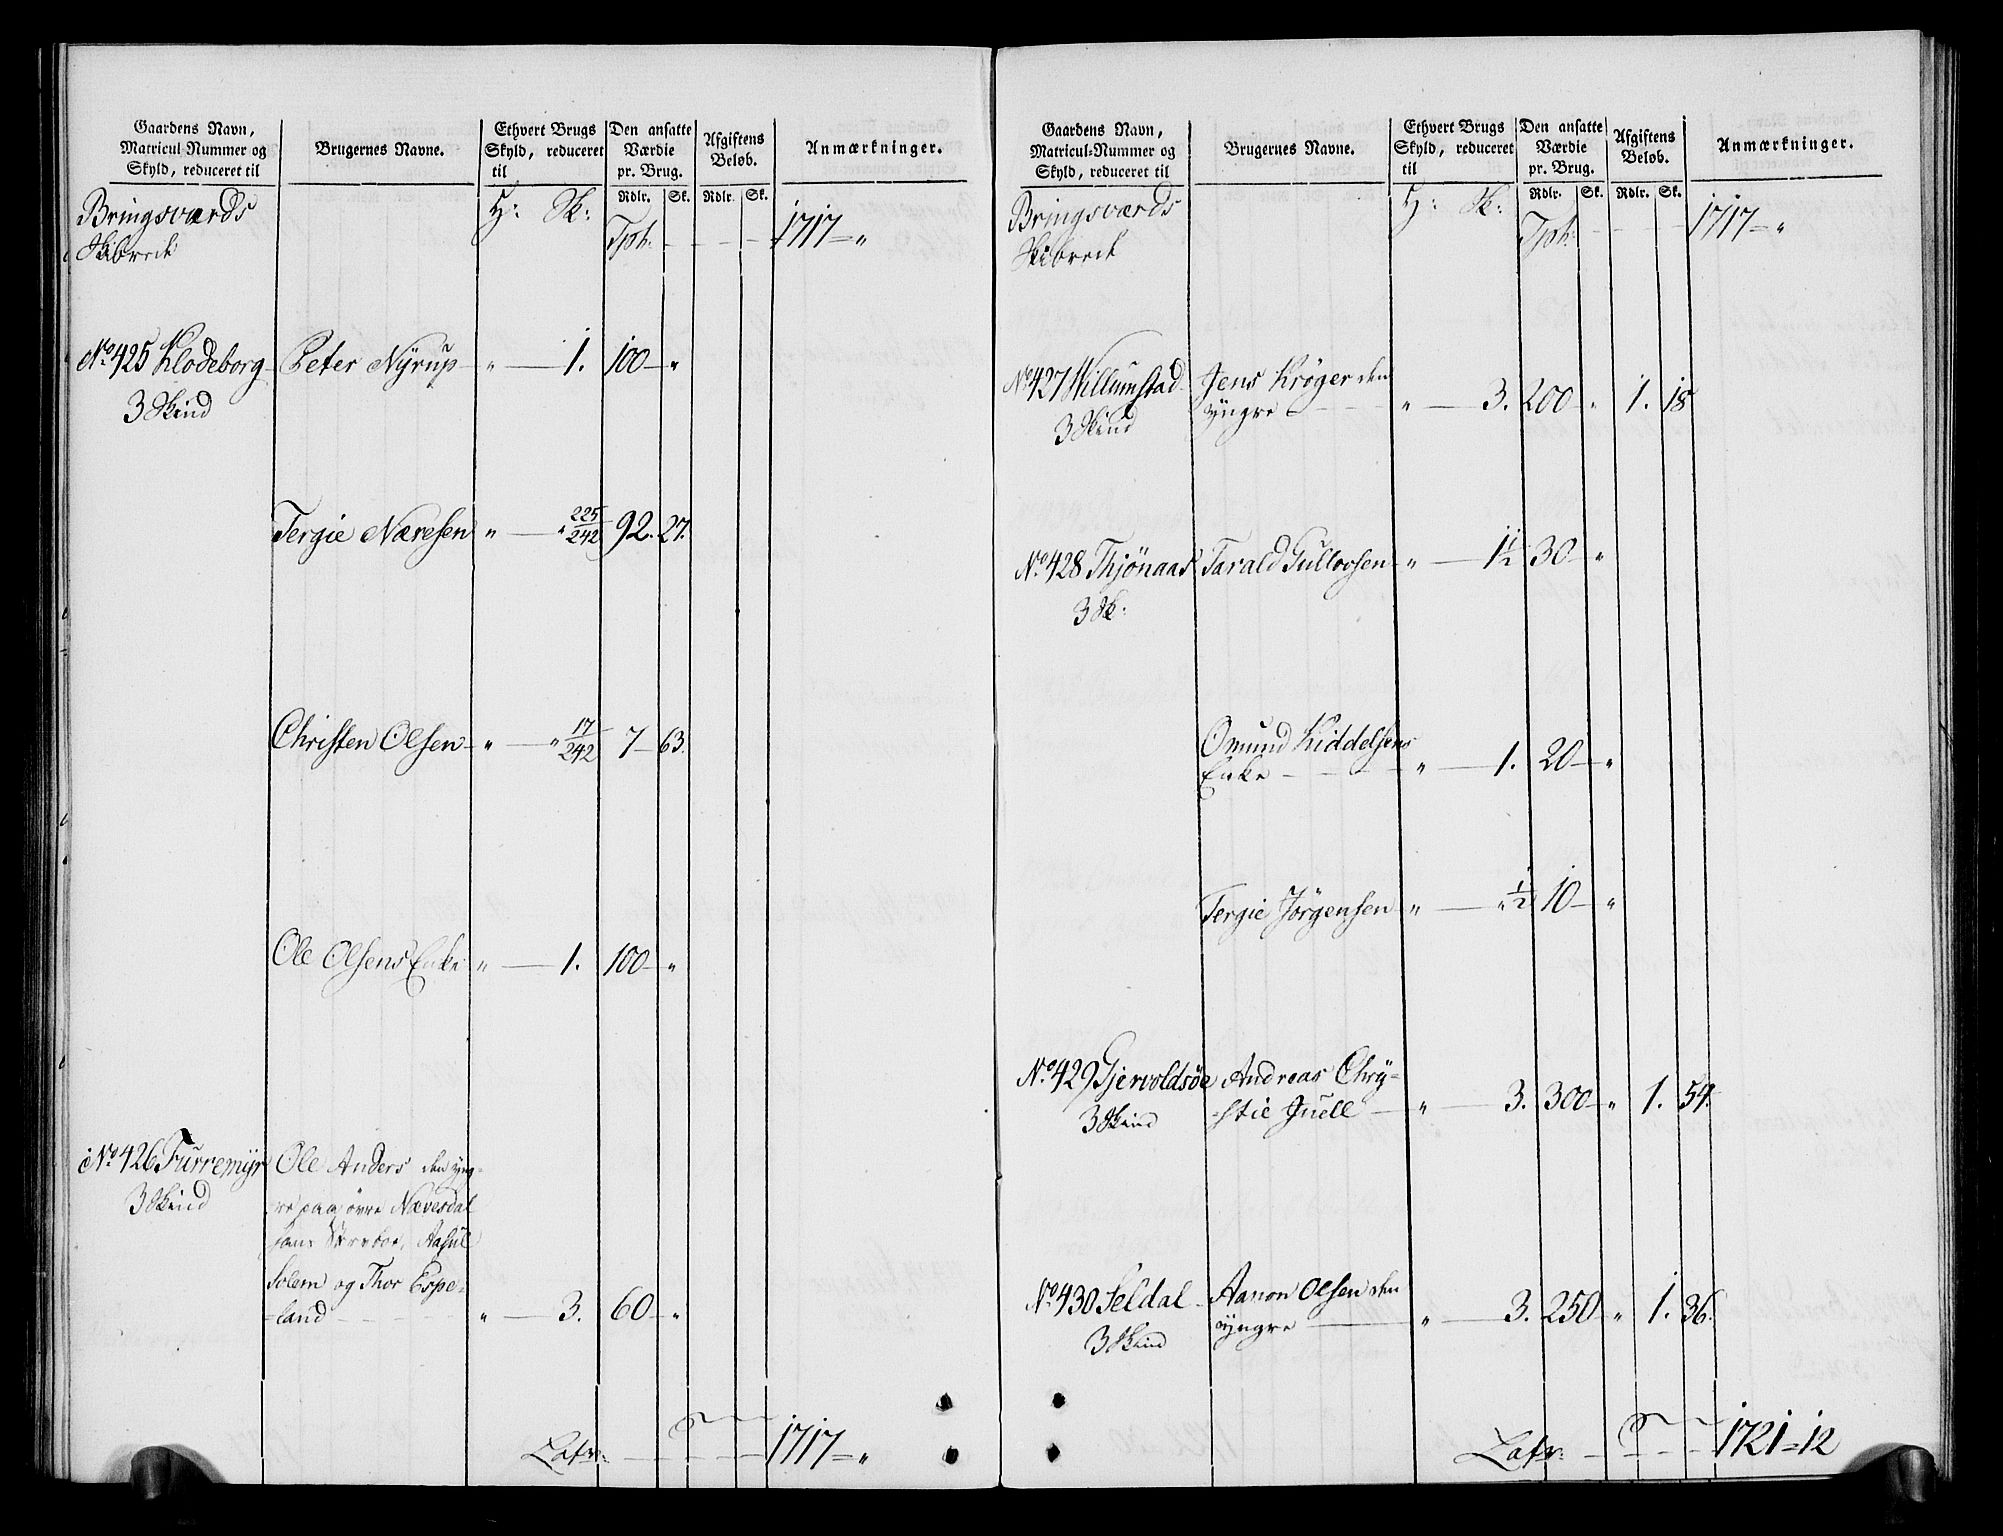 Gaardens Navn,
Matricul-Nummer og
Skyld, reduceret til
Brugernes Navne.
Ethvert Brugs
Skyld, reduceret
til
Den ansatte
Værdie
pr. Brug.
Afgiftens
Beløb.
Anmærkninger.
Rdlr. Sk. Rdlr. Sk.
Bringsværds
Skibrede
H: Sk:
Tph. 1717 "
No. 425 Klodeborg Peter Nyrup " 1. 100 "
3 Skind
Tergie Næresen " " 225/242 92. 27.
Christen Olsen " " 17/242 7 63.
Ole Olsens Enke " 1. 100 "
No. 426 Furremyr Ole Anders den yng-
3 Skind
re paa øvre Nævesdal
Aasül
Solem og Thor Espe-
-land " 3. 60 "
Latr: 1717 "
Gaardens Navn,
Matricul-Nummer og
Skyld, reduceret til
Brugernes Navne.
Ethvert Brugs
Skyld, reduceret
til
Den ansatte
Værdie
pr. Brug.
Afgiftens
Beløb.
Anmærkninger.
Rdlr. Sk. Rdlr. Sk.
Bringsværds
Skibrede
H: Sk:
Tph: 1717 "
No. 427 Willumstad Jens Krøger den
yngre " 3. 200 " 1. 18
3 Skind
No. 428 Thjönaas Tarald Gullovsen " 1 1/2 30 "
3 Sk.
Omund Kiddelsens
Enke " 1. 20 "
Tergie Jörgensen " " 1/2 10 "
No. 429 Gjervoldsöe Andreas Chry-
3 Skind
-stie Juell " 3. 300 " 1. 54.
No. 430 Seldal Aanon Olsen den
yngre " 3. 250 " 1. 36.
3 Skind
Latr: 1721 12